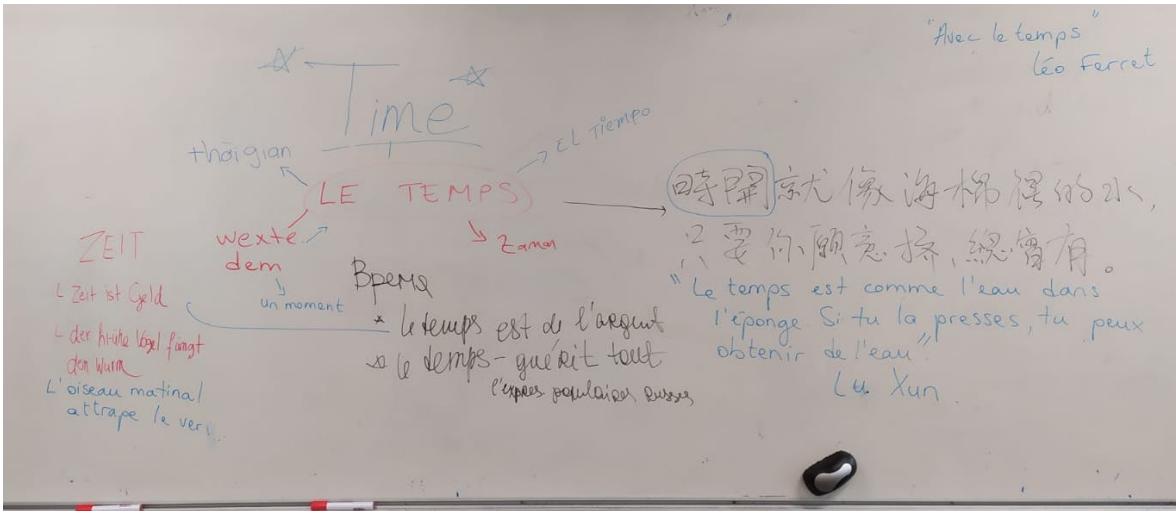 "Avec le temps"
Léo Ferret
Time
thời gian
EL Tiempo
LE TEMPS
wexté
dem
un moment
Zaman
ZEIT
Zeit ist Geld
der frühe Vogel fängt
den Wurm
L'oiseau matinal
attrape le ver
Время
* le temps est de l'argent
* le temps - guérit tout
l'expres populaires russes
時間就像海棉裡的水,
只要你願意擠,總會有。
"Le temps est comme l'eau dans
l'éponge Si tu la presses, tu peux
obtenir de l'eau"
Lu Xun.